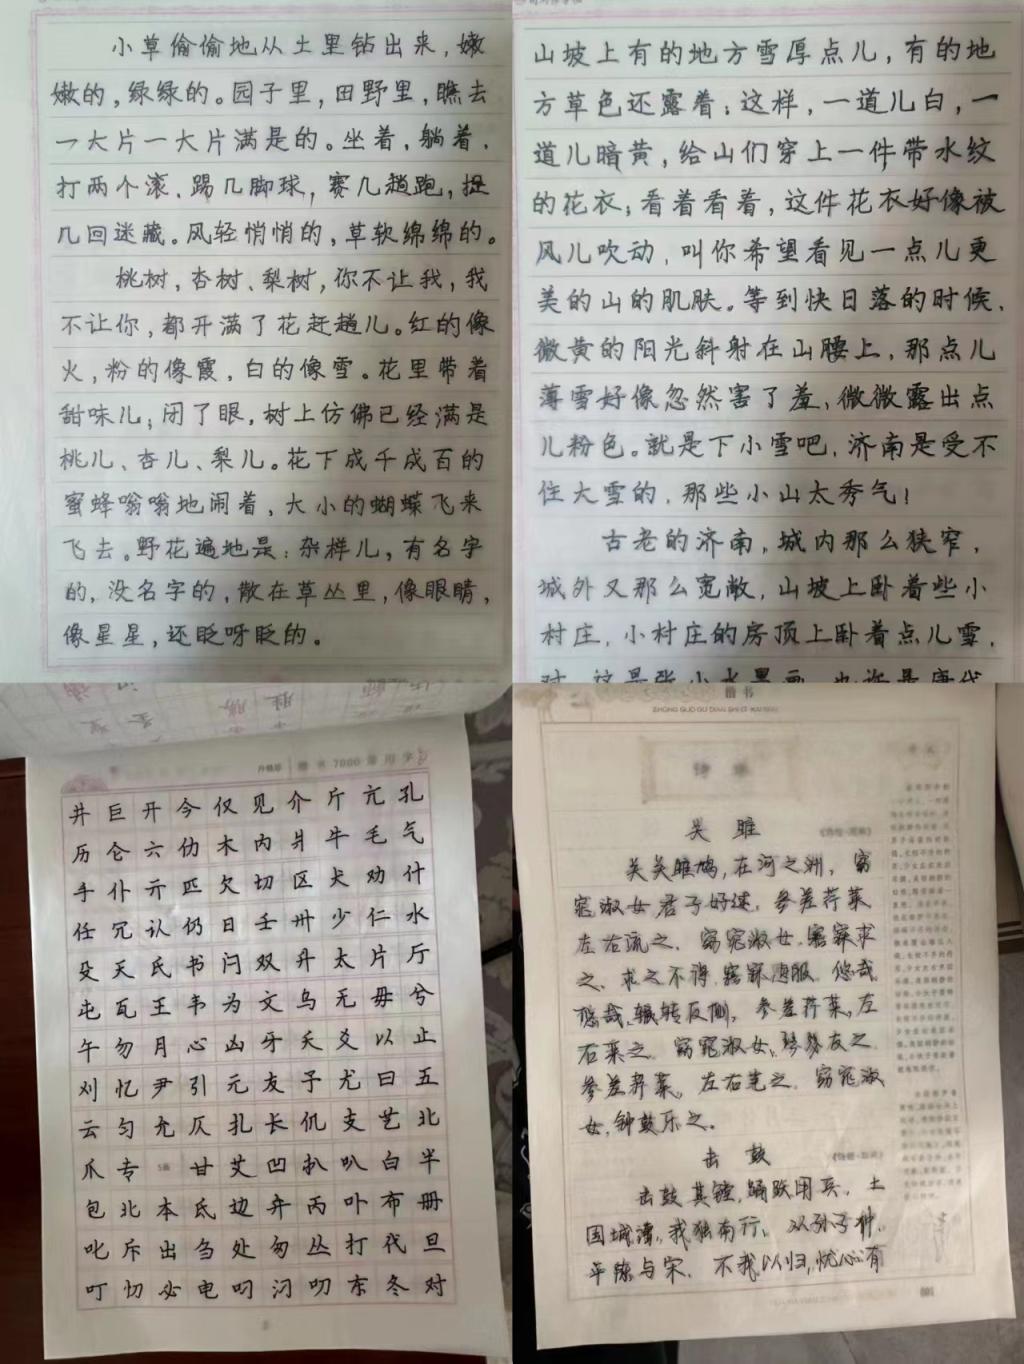 小草偷偷地从土里钻出来，嫩
嫩的，绿绿的。园子里，田野里，瞧去
一大片一大片满是的。坐着，躺着，
打两个滚、踢几脚球，赛几趟跑，捉
几回迷藏。风轻悄悄的，草软绵绵的。
桃树，杏树、梨树，你不让我，我
不让你，都开满了花赶趟儿。红的像
火，粉的像霞，白的像雪。花里带着
甜味儿；闭了眼，树上仿佛已经满是
桃儿、杏儿、梨儿。花下成千成百的
蜜蜂嗡嗡地闹着，大小的蝴蝶飞来
飞去。野花遍地是：杂样儿，有名字
的，没名字的，散在草丛里，像眼睛，
像星星，还眨呀眨的。
山坡上有的地方雪厚点儿，有的地
方草色还露着；这样，一道儿白，一
道儿暗黄，给山们穿上一件带水纹
的花衣；看着看着，这件花衣好像被
风儿吹动，叫你希望看见一点儿更
美的山的肌肤。等到快日落的时候，
微黄的阳光斜射在山腰上，那点儿
薄雪好像忽然害了羞，微微露出点
儿粉色。就是下小雪吧，济南是受不
住大雪的，那些小山太秀气！
古老的济南，城内那么狭窄，
城外又那么宽敞，山坡上卧着些小
村庄，小村庄的房顶上卧着点儿雪，
对，这是张小水墨画，也许是唐代
楷书7000常用字
井巨开今仅见介斤亢孔
历仑六仂木内爿牛毛气
手仆亓匹欠切区犬劝什
任冗认仍日壬卅少仁水
殳天氏书闩双升太片厅
屯瓦王韦为文乌无毋兮
午勿月心凶牙夭爻以止
刈忆尹引元友予尤曰五
云匀允仄扎长仉支艺北
爪专 5画 甘艾凹扒叭白半
包北本氐边弁丙卟布册
叱斥出刍处匆丛打代旦
叮忉必电叼氕叨东冬对
楷书
ZHONG GUO GU DIAN SHI CI KAI SHU
关雎
《诗经·周南》
关关雎鸠，在河之洲，窈
窕淑女君子好逑，参差荇菜
左右流之，窈窕淑女，寤寐求
之、求之不得，寤寐思服，悠哉
悠哉，辗转反侧，参差荇菜，左
右采之，窈窕淑女，琴瑟友之
参差荇菜，左右芼之，窈窕淑
女，钟鼓乐之。
击鼓
击鼓其镗，踊跃用兵，土
国城漕，我独南行，从孙子仲，
平陈与宋，不我以归，忧心有